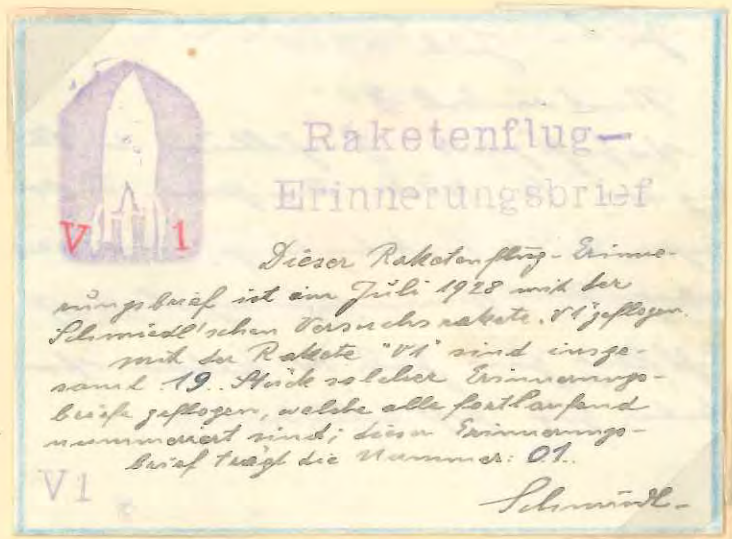 V 1
Raketenflug-
Erinnerungsbrief
Dieser Raketenflug-Erinne-
rungsbrief ist im Juli 1928 mit der
Schmiedl'schen Versuchsrakete "V1" geflogen.
mit der Rakete "V1" sind insge-
samt 19 Stück solcher Erinnerungs-
briefe geflogen, welche alle fortlaufend
nummeriert sind; dieser Erinnerungs-
brief trägt die Nummer: 01.
V1
Schmiedl-